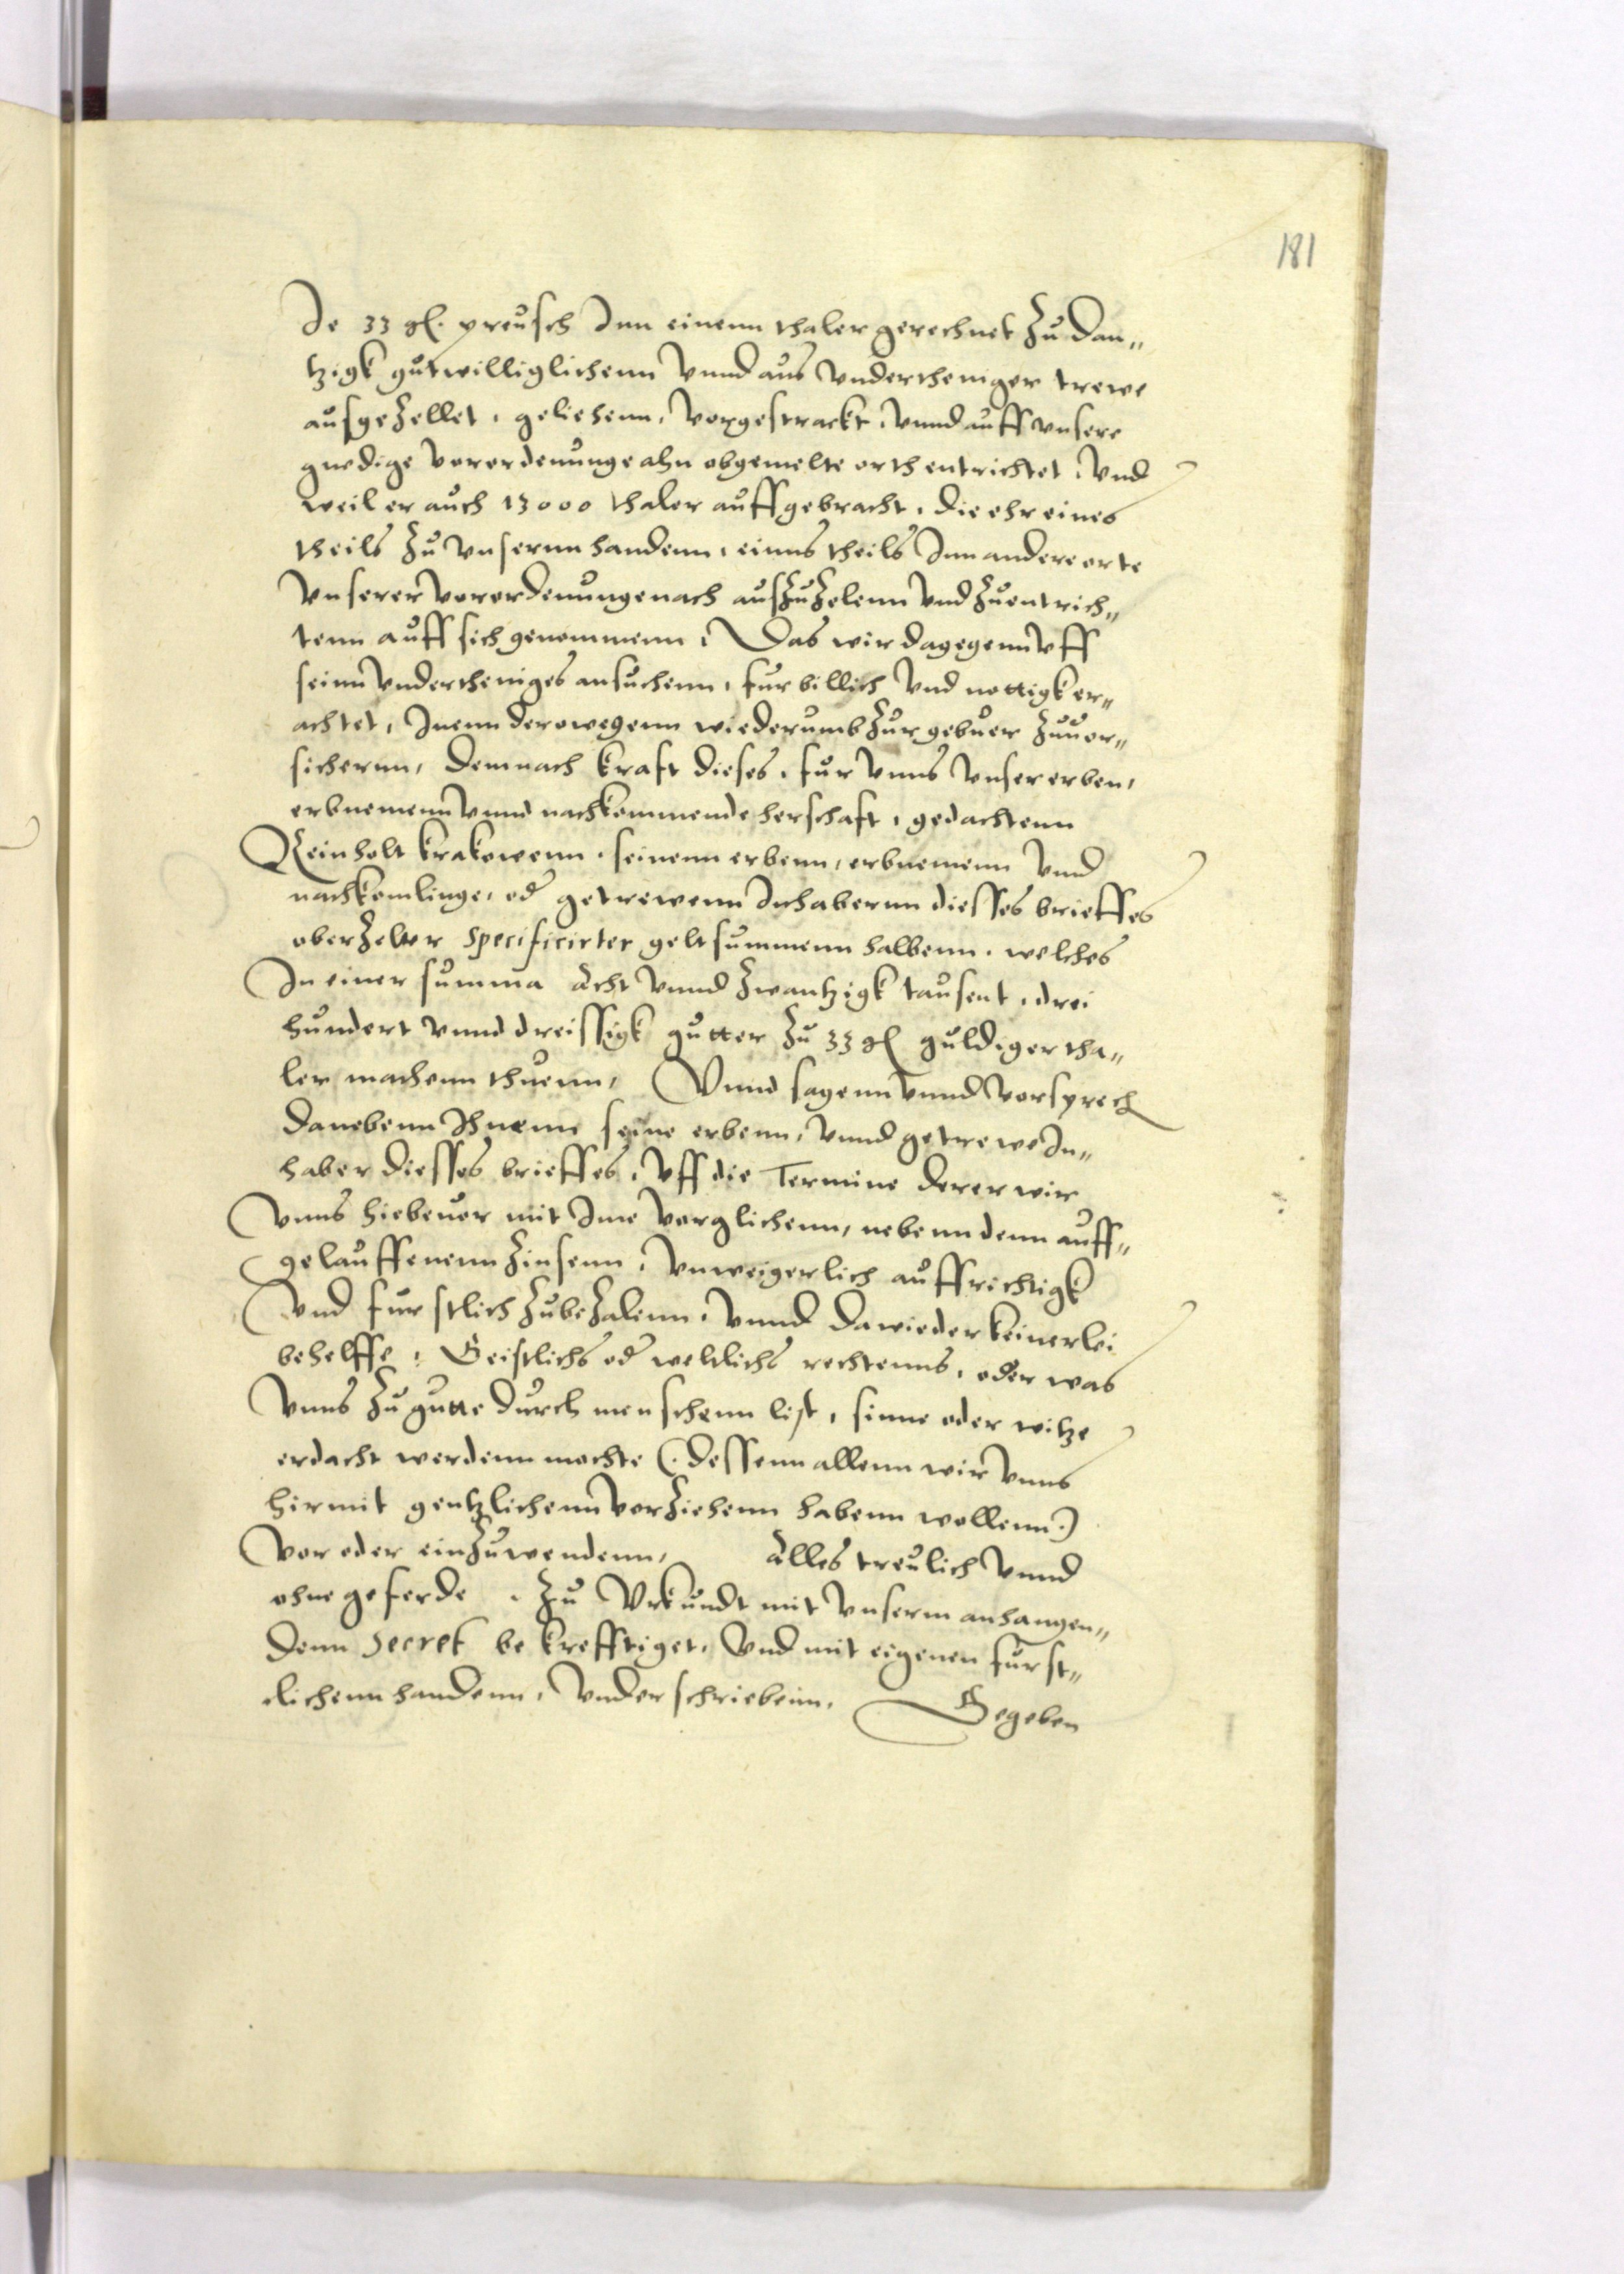 181
Je 33 gl. preusch Inn einenn thaler gerechnet Zu dan„
tzigk gutwilliglichenn vnnd aus vndertheniger trewe
ausgeZellet, geliehenn, vorgestrackt, vnnd auff vnsere
gnedige verordenunge ahn obgemelte orth entrichtet, vnd
weil er auch 13000 thaler auffgebracht, die ehr eines
theils Zu vnsernn handenn, einns theils Inn andere orte
vnserer verordenunge nach ausZuZelenn vnd Zuentrich„
tenn auff sich genommenn, Das wir dagegenn vff
seinn vndertheniges ansuchenn, fur billich vnd nottigk er„
achtet, Inenn derowegenn wiederumb Zur gebuer Zuuor„
sichernn, demnach kraft dieses, fur vnns vnser erben,
erbnemenn vnnd nachkommende herschaft, gedachtenn
Reinholt krakowenn, seinenn erbenn, erbnemenn vnnd
nachkomlinge, od getrewenn Inhabernn diesses brieffes
oberZelter specificirter geltsummenn halbenn, welches
In einer summa Acht vnnd Zwantzigk tausent, drei
hundert vnnd dreissigk gutter Zu 33 gl guldiger tha„
ler machenn thuenn, Vnnd sagenn vnnd vorsprech
danebenn Ihnenn seine erbenn, vnnd getrewe In„
haber diesses brieffes, vff die Termine derer wir
vnns hiebeuor mit Ime verglichenn, nebenn denn auff„
gelauffenenn Zinsenn, vnweigerlich auffrichtigk
vnd furstlich ZubeZalenn, vnnd dawieder keinerlei
behelffe, Geistlichs od weltlichs rechtenns, oder was
vnns Zu gutte durch menschenn list, sinne oder witze
erdacht werdenn mochte (. dessenn allenn wir vnns
hirmit gentzlichenn vorZiehenn habenn wollenn .)
vor oder einZuwendenn, Alles treulich vnnd
ohne geferde. Zu Vrkundt mit vnserm anhangen„
denn Secret bekrefftiget, vnd mit eigenen furst„
lichenn handenn, vnderschriebenn, Gegeben